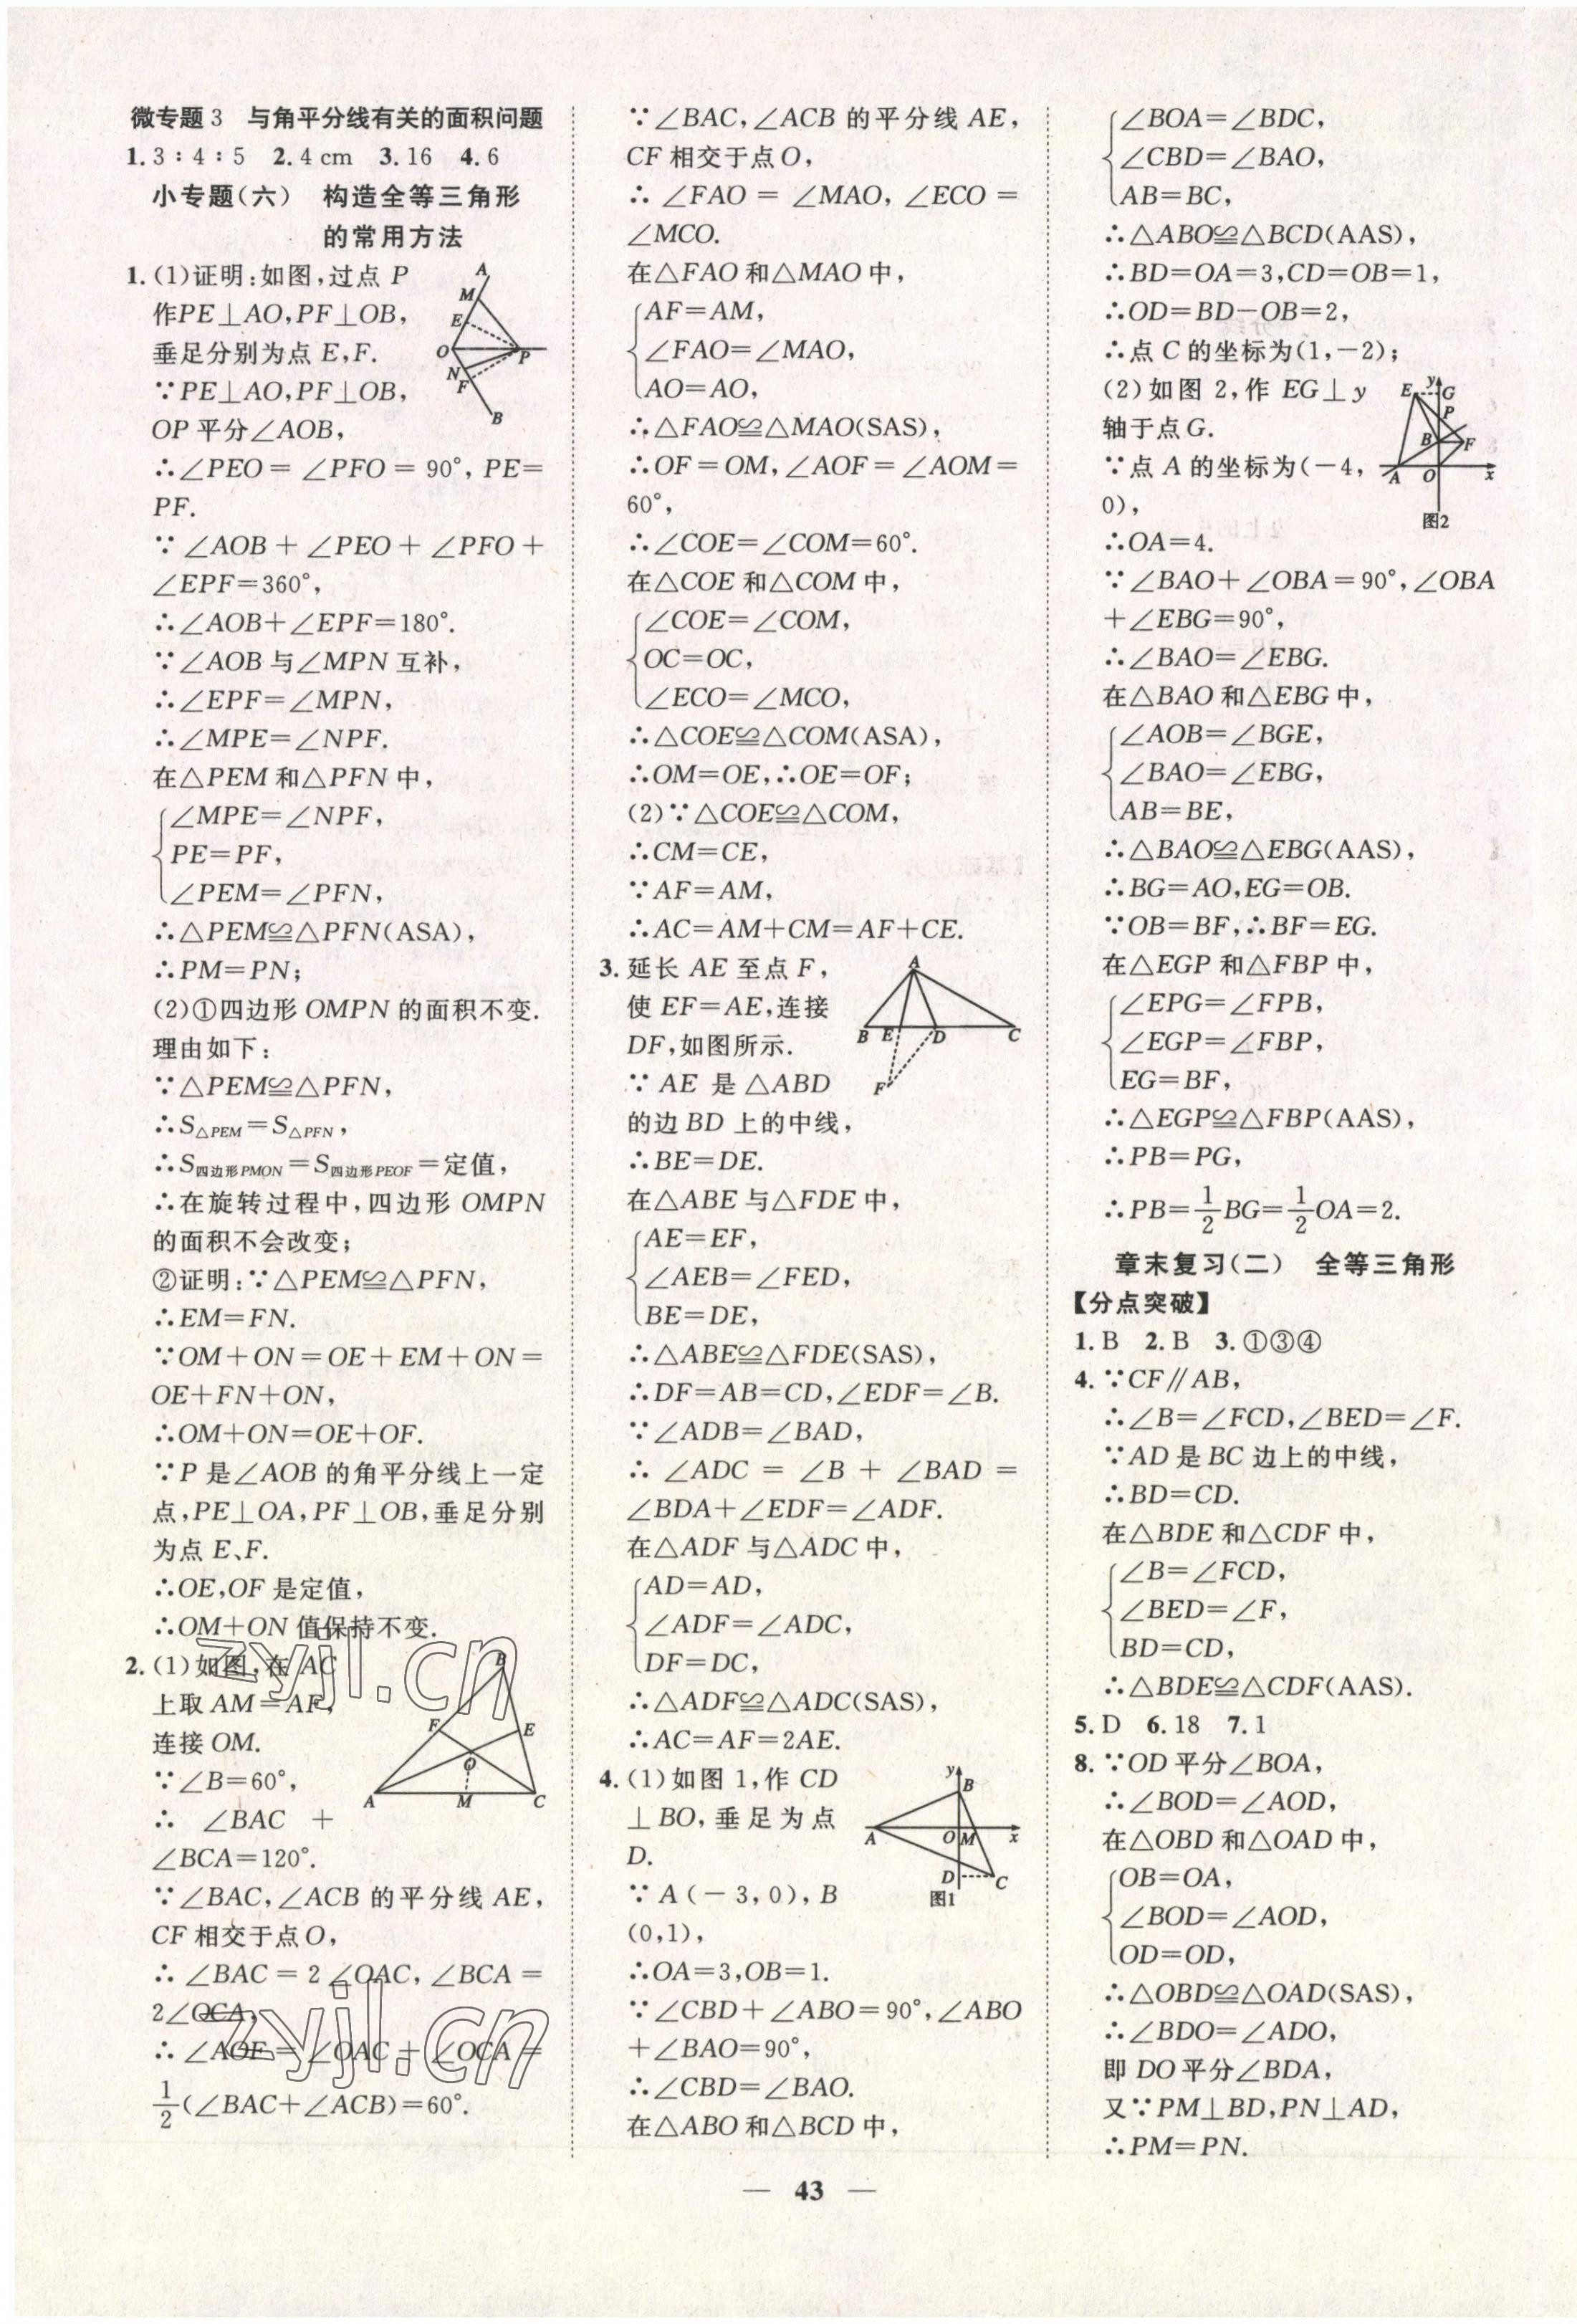 微专题3　与角平分线有关的面积问题
1. 3∶4∶5　2. 4 cm　3. 16　4. 6
小专题(六)　构造全等三角形
的常用方法
1. (1)证明:如图,过点 P
作PE⊥AO,PF⊥OB,
垂足分别为点 E,F.
∵PE⊥AO,PF⊥OB,
OP 平分∠AOB,
∴∠PEO=∠PFO=90°,PE=
PF.
∵∠AOB+∠PEO+∠PFO+
∠EPF=360°,
∴∠AOB+∠EPF=180°.
∵∠AOB 与∠MPN 互补,
∴∠EPF=∠MPN,
∴∠MPE=∠NPF.
在△PEM 和△PFN 中,
∠MPE=∠NPF,
PE=PF,
∠PEM=∠PFN,
∴△PEM≌△PFN(ASA),
∴PM=PN;
(2)①四边形 OMPN 的面积不变.
理由如下:
∵△PEM≌△PFN,
∴S△PEM=S△PFN,
∴S四边形PMON=S四边形PEOF=定值,
∴在旋转过程中,四边形 OMPN
的面积不会改变;
②证明:∵△PEM≌△PFN,
∴EM=FN.
∵OM+ON=OE+EM+ON=
OE+FN+ON,
∴OM+ON=OE+OF.
∵P 是∠AOB 的角平分线上一定
点,PE⊥OA,PF⊥OB,垂足分别
为点 E、F.
∴OE,OF 是定值,
∴OM+ON 值保持不变.
2. (1)如图,在 AC
上取 AM=AF,
连接 OM.
∵∠B=60°,
∴∠BAC+
∠BCA=120°.
∵∠BAC,∠ACB 的平分线 AE,
CF 相交于点O,
∴∠BAC=2∠OAC,∠BCA=
2∠OCA,
∴∠AOF=∠OAC+∠OCA=
1/2(∠BAC+∠ACB)=60°.
∵∠BAC,∠ACB 的平分线 AE,
CF 相交于点O,
∴∠FAO=∠MAO,∠ECO=
∠MCO.
在△FAO 和△MAO 中,
AF=AM,
∠FAO=∠MAO,
AO=AO,
∴△FAO≌△MAO(SAS),
∴OF=OM,∠AOF=∠AOM=
60°,
∴∠COE=∠COM=60°.
在△COE 和△COM 中,
∠COE=∠COM,
OC=OC,
∠ECO=∠MCO,
∴△COE≌△COM(ASA),
∴OM=OE,∴OE=OF;
(2)∵△COE≌△COM,
∴CM=CE,
∵AF=AM,
∴AC=AM+CM=AF+CE.
3. 延长 AE 至点 F,
使 EF=AE,连接
DF,如图所示.
∵AE 是△ABD
的边 BD 上的中线,
∴BE=DE.
在△ABE 与△FDE 中,
AE=EF,
∠AEB=∠FED,
BE=DE,
∴△ABE≌△FDE(SAS),
∴DF=AB=CD,∠EDF=∠B.
∵∠ADB=∠BAD,
∴∠ADC=∠B+∠BAD=
∠BDA+∠EDF=∠ADF.
在△ADF 与△ADC 中,
AD=AD,
∠ADF=∠ADC,
DF=DC,
∴△ADF≌△ADC(SAS),
∴AC=AF=2AE.
4. (1)如图 1,作 CD
⊥BO,垂足为点
D.
∵A(-3,0),B
(0,1),
∴OA=3,OB=1.
∵∠CBD+∠ABO=90°,∠ABO
+∠BAO=90°,
∴∠CBD=∠BAO.
在△ABO 和△BCD 中,
∠BOA=∠BDC,
∠CBD=∠BAO,
AB=BC,
∴△ABO≌△BCD(AAS),
∴BD=OA=3,CD=OB=1,
∴OD=BD-OB=2,
∴点 C 的坐标为(1,-2);
(2)如图 2,作 EG⊥y
轴于点G.
∵点 A 的坐标为(-4,
0),
∴OA=4.
∵∠BAO+∠OBA=90°,∠OBA
+∠EBG=90°,
∴∠BAO=∠EBG.
在△BAO 和△EBG 中,
∠AOB=∠BGE,
∠BAO=∠EBG,
AB=BE,
∴△BAO≌△EBG(AAS),
∴BG=AO,EG=OB.
∵OB=BF,∴BF=EG.
在△EGP 和△FBP 中,
∠EPG=∠FPB,
∠EGP=∠FBP,
EG=BF,
∴△EGP≌△FBP(AAS),
∴PB=PG,
∴PB=1/2BG=1/2OA=2.
章末复习(二)　全等三角形
【分点突破】
1. B　2. B　3. ①③④
4. ∵CF∥AB,
∴∠B=∠FCD,∠BED=∠F.
∵AD 是 BC 边上的中线,
∴BD=CD.
在△BDE 和△CDF 中,
∠B=∠FCD,
∠BED=∠F,
BD=CD,
∴△BDE≌△CDF(AAS).
5. D　6. 18　7. 1
8. ∵OD 平分∠BOA,
∴∠BOD=∠AOD,
在△OBD 和△OAD 中,
OB=OA,
∠BOD=∠AOD,
OD=OD,
∴△OBD≌△OAD(SAS),
∴∠BDO=∠ADO,
即 DO 平分∠BDA,
又∵PM⊥BD,PN⊥AD,
∴PM=PN.
A
M
E
O
P
N
F
B
B
F
E
O
A
M
C
A
B
E
D
C
F
y
B
A
O
M
x
D
C
图1
E
y
G
P
B
F
A
O
x
图2
zyjl.cn
zyjl.cn
— 43 —